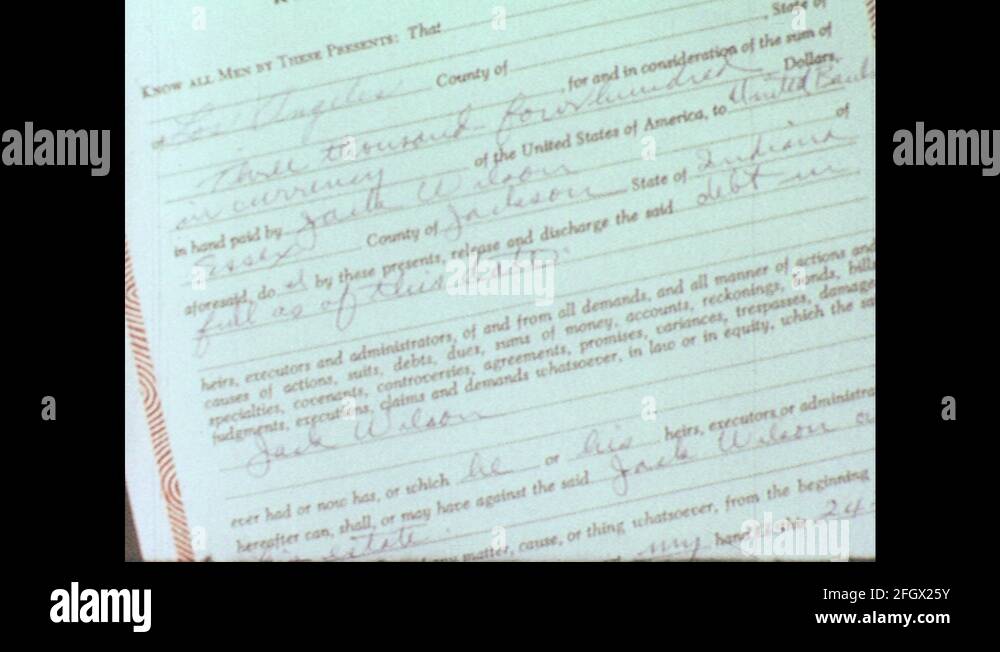 KNOW ALL MEN BY THESE PRESENTS: That
of Los Angeles County of , State of
, for and in consideration of the sum of
Three thousand four hundred Dollars,
in currency of the United States of America, to United Bank
in hand paid by Jack Wilson of
Essex County of Jackson State of Indiana
aforesaid, do I by these presents, release and discharge the said debt in
full as of this date.
heirs, executors and administrators, of and from all demands, and all manner of actions and
causes of actions, suits, debts, dues, sums of money, accounts, reckonings, bonds, bills
specialties, covenants, controversies, agreements, promises, variances, trespasses, damage
judgments, executions, claims and demands whatsoever, in law or in equity, which the sa
Jack Wilson
ever had or now has, or which he or his heirs, executors or administra
hereafter can, shall, or may have against the said Jack Wilson
estate. any matter, cause, or thing whatsoever, from the beginning
my hand this 24
alamy
a
a
alamy
a
alamy
a
a
a
alamy
alamy
Image ID: 2FGX25Y
www.alamy.com